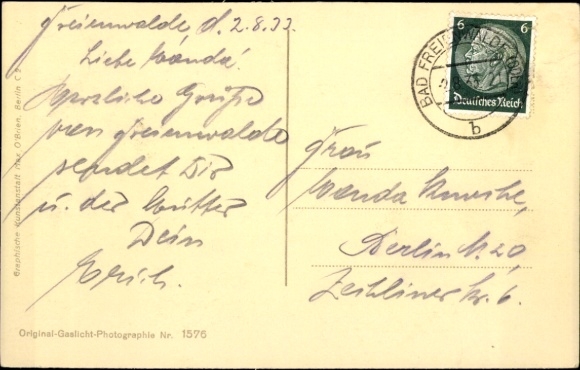 Freienwalde d. 2.8.33.
Liebe Wanda!
Herzliche Grüße
von Freienwalde
sendet Dir
u. der Mutter
Dein
Erich.
6 6
Deutsches Reich
BAD FREIENWALDE (ODER)
b
Frau
Wanda
Berlin N. 20,
Str. 6.
Graphische Kunstanstalt Max O'Brien, Berlin
Original-Gaslicht-Photographie Nr. 1576